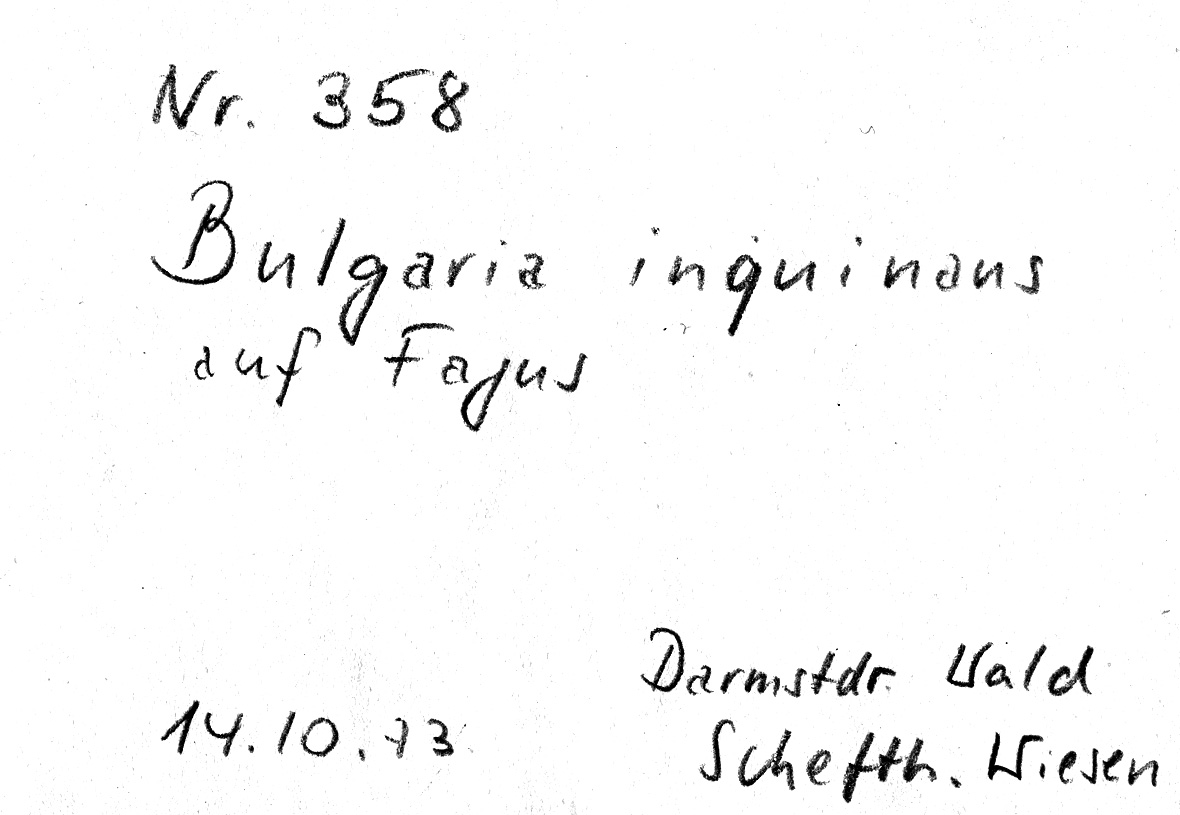 Nr. 358
Bulgaria inquinans
auf Fagus
Darmstdr. Wald
14.10.73
Schefth. Wiesen